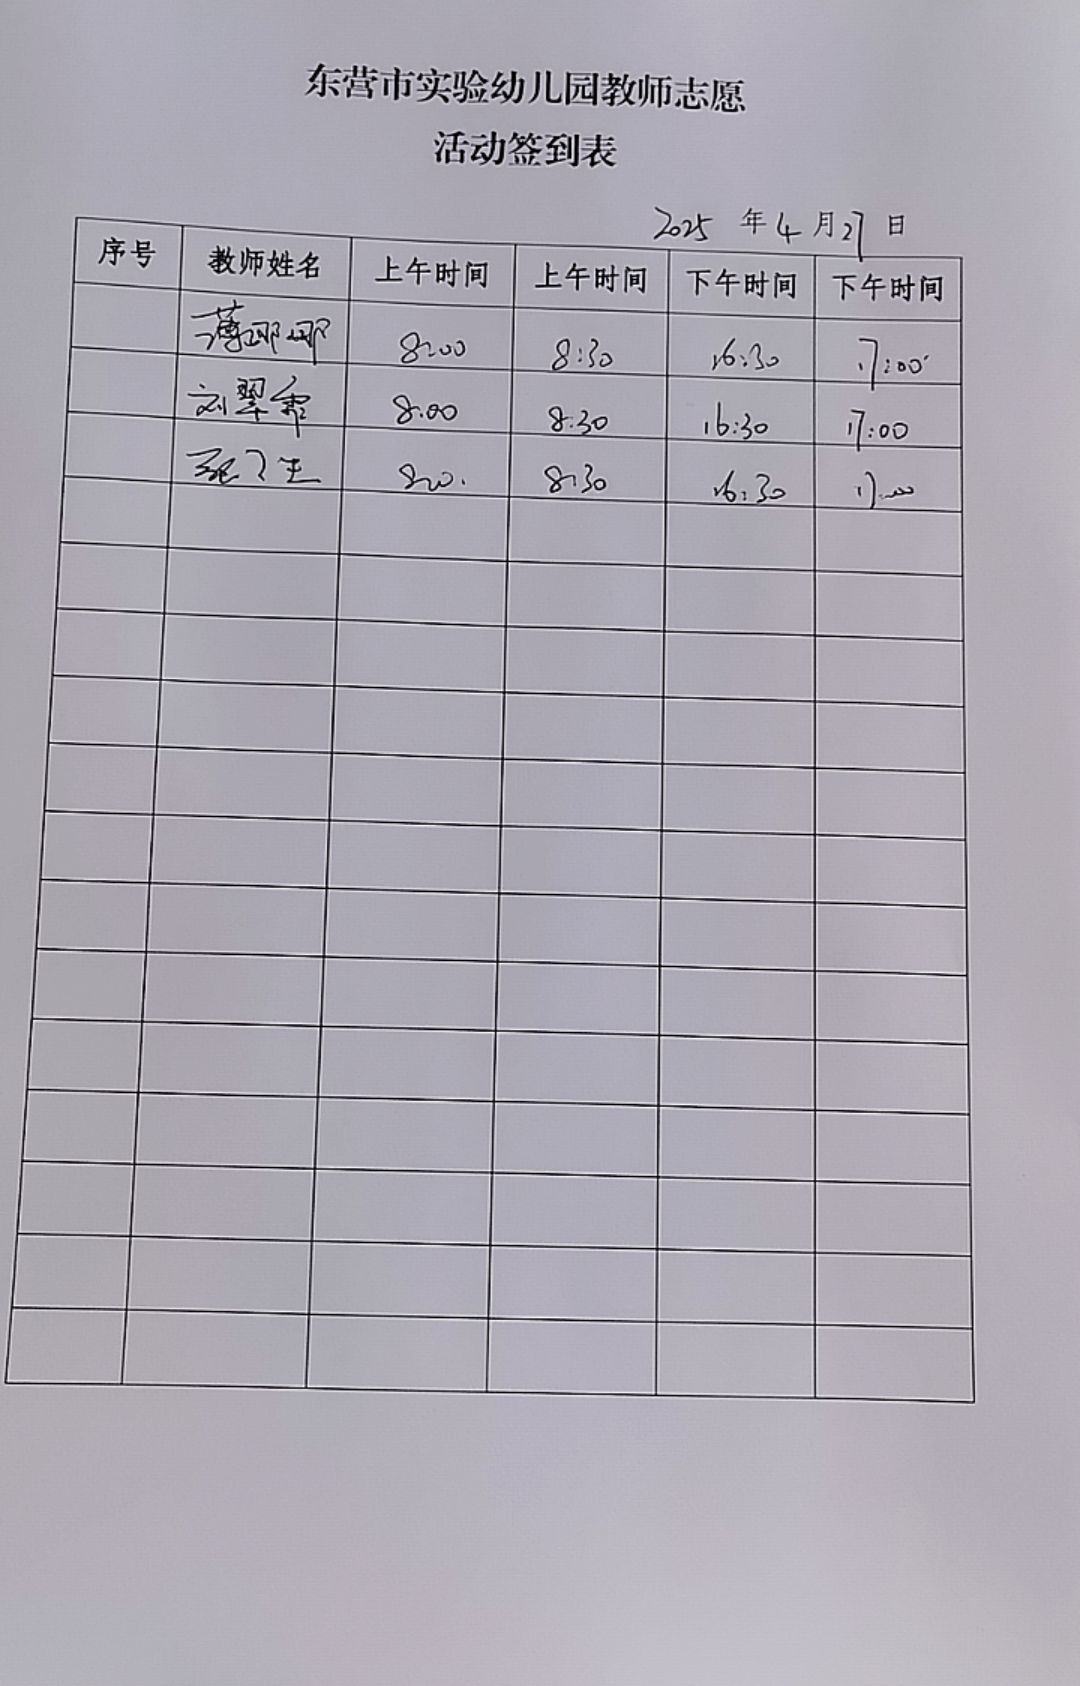 东营市实验幼儿园教师志愿
活动签到表
2025 年 4 月 27 日
序号 教师姓名 上午时间 上午时间 下午时间 下午时间
薄娜娜 8:00 8:30 16:30 17:00
刘翠霞 8:00 8:30 16:30 17:00
8:00 8:30 16:30 17:00